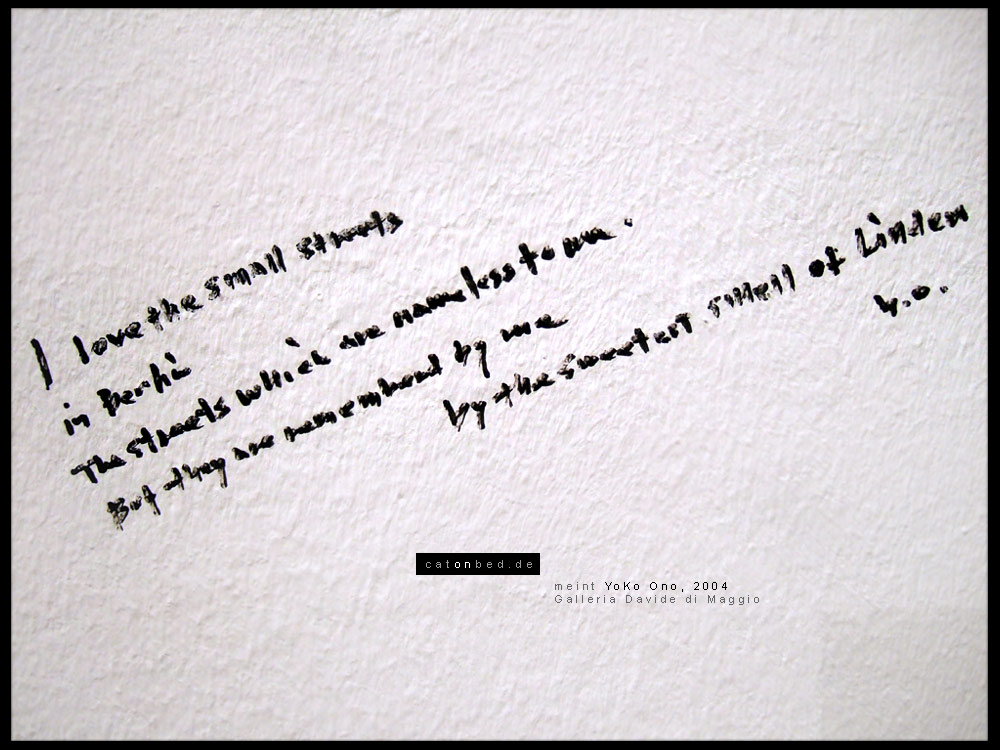 I love the small streets
in Berlin
The streets which are nameless to me.
But they are remembered by me
by the sweetest smell of Linden
y.o.
catonbed.de
meint YoKo Ono, 2004
Galleria Davide di Maggio